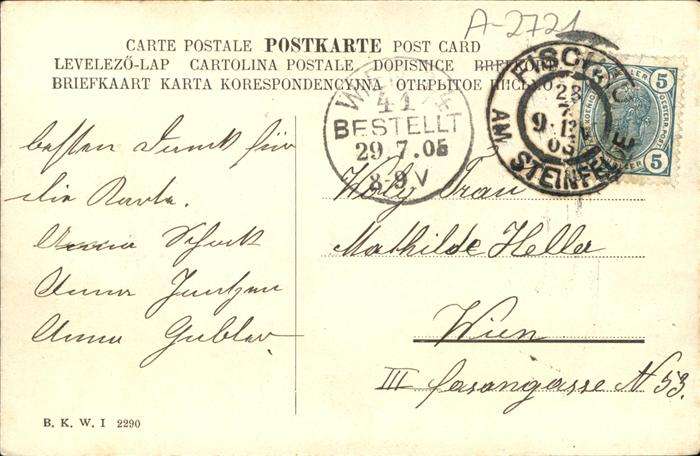 A-2721
CARTE POSTALE POSTKARTE POST CARD
LEVELEZŐ-LAP CARTOLINA POSTALE DOPISNICE BRIEFKORT
BRIEFKAART KARTA KORESPONDENCYJNA ОТКРЫТОЕ ПИСЬМО
WIEN
41
BESTELLT
29.7.05
8-9 V
FISCH
AM STEINFELDE
28
7
9
5
5
besten Dank für
die Karte.
Schock
Anna
Anna Gubler
Frau
Mathilde Heller
Wien
III Fasangasse N 53.
B. K. W. I 2290